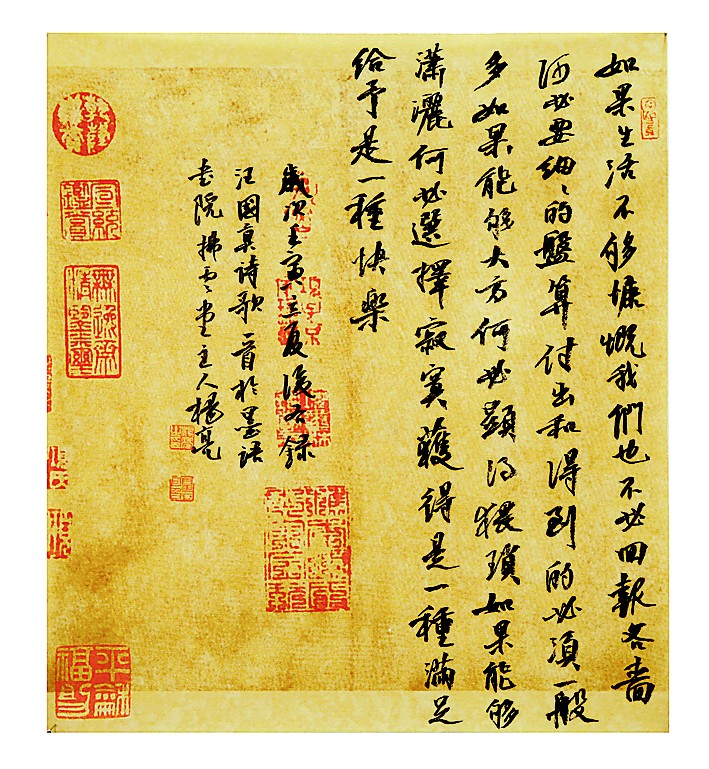 如果生活不够慷慨我們也不必回報吝嗇
何必要細々的盤算付出和得到的必須一般
多如果能够大方何必顯得猥瑣如果能够
瀟灑何必選擇寂寞獲得是一種滿足
給予是一種快樂
歲次壬寅立夏後錄
汪國真詩歌一首於墨語
書院拂雲堂主人楊亮
宣統鑑賞
無逸齋精鑑璽